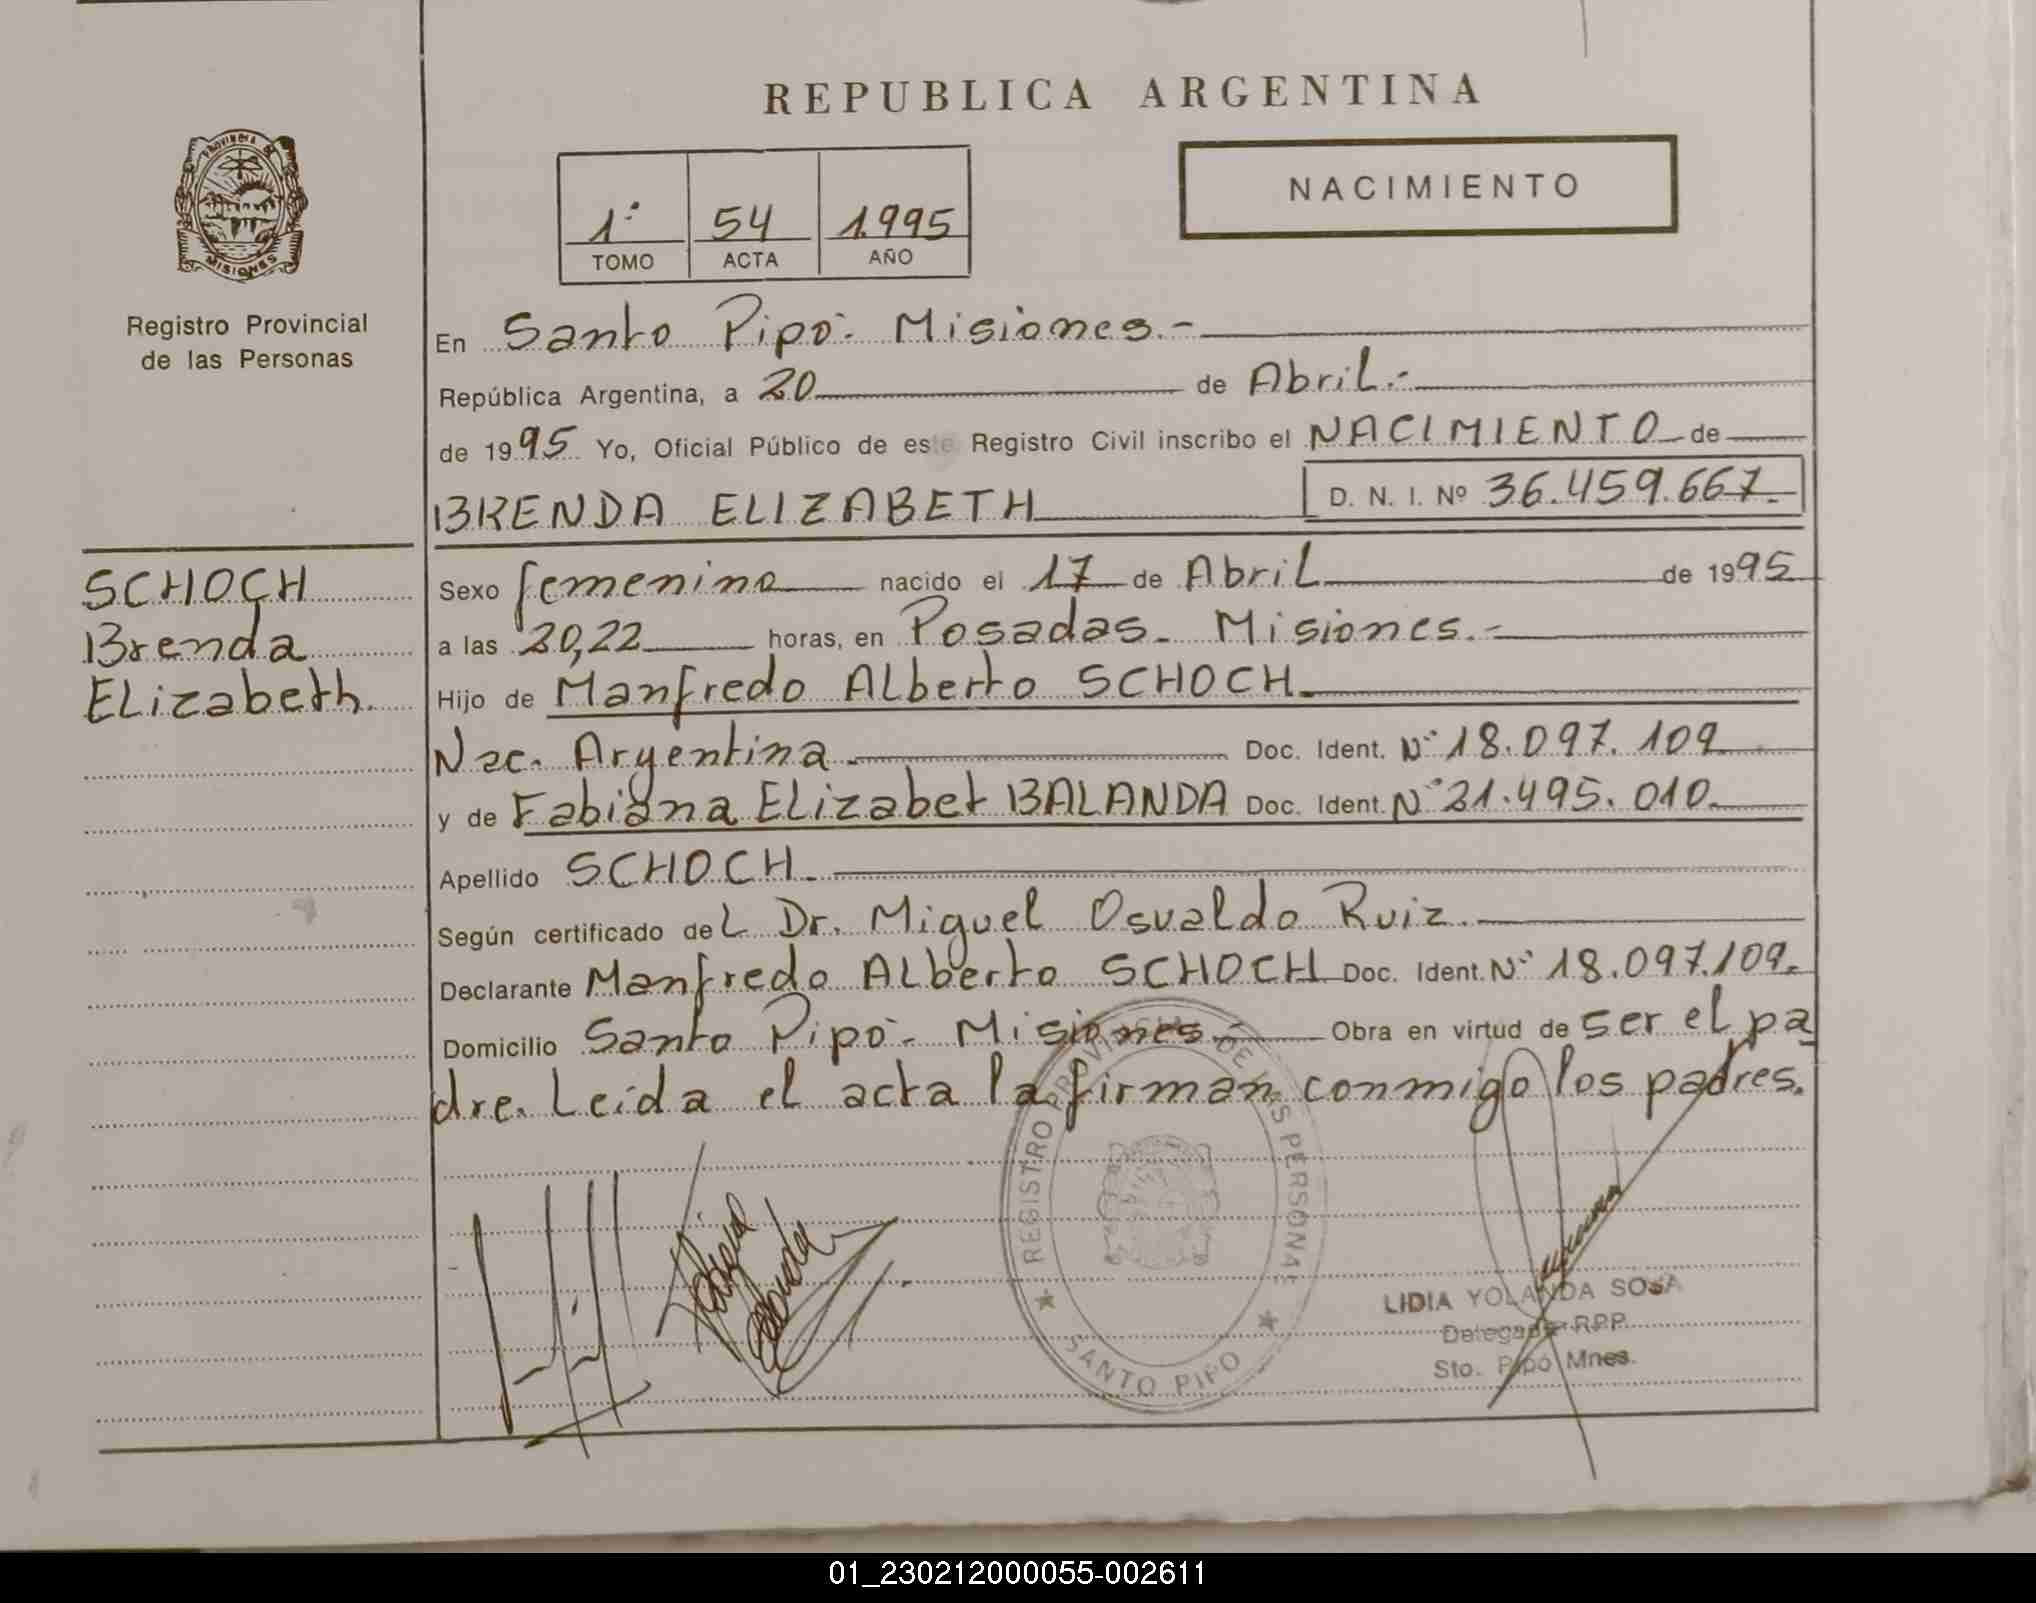 REPUBLICA ARGENTINA
PROVINCIA DE
MISIONES
Registro Provincial
de las Personas
NACIMIENTO
1º 54 1.995
TOMO ACTA AÑO
En Santo Pipó - Misiones.-
República Argentina, a 20 de Abril.-
de 1995 Yo, Oficial Público de este Registro Civil inscribo el NACIMIENTO de
BRENDA ELIZABETH D. N. I. Nº 36.459.667.
SCHOCH
Brenda
Elizabeth.
Sexo femenino nacido el 17 de Abril de 1995
a las 20,22 horas, en Posadas - Misiones.-
Hijo de Manfredo Alberto SCHOCH.
Nac. Argentina. Doc. Ident. Nº 18.097.109
y de Fabiana Elizabet BALANDA Doc. Ident. Nº 21.495.010.
Apellido SCHOCH.
Según certificado del Dr. Miguel Osvaldo Ruiz.
Declarante Manfredo Alberto SCHOCH Doc. Ident. Nº 18.097.109.
Domicilio Santo Pipó - Misiones - Obra en virtud de ser el pa
dre. Leida el acta la firman conmigo los padres.
REGISTRO PROVINCIAL DE LAS PERSONAS
SANTO PIPO
LIDIA YOLANDA SOSA
Delegada RPP
Sto. Pipó Mnes.
01_230212000055-002611